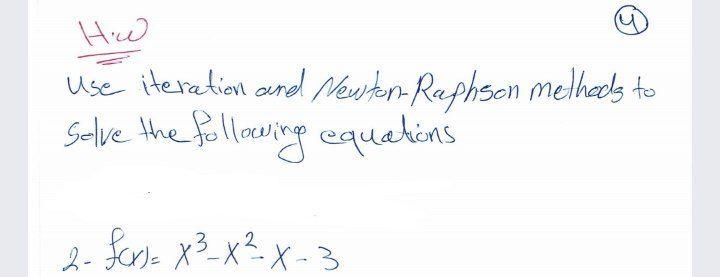 H.w
4
Use iteration and Newton-Raphson methods to
Solve the following equations
2- f(x)= x³-x²-x-3